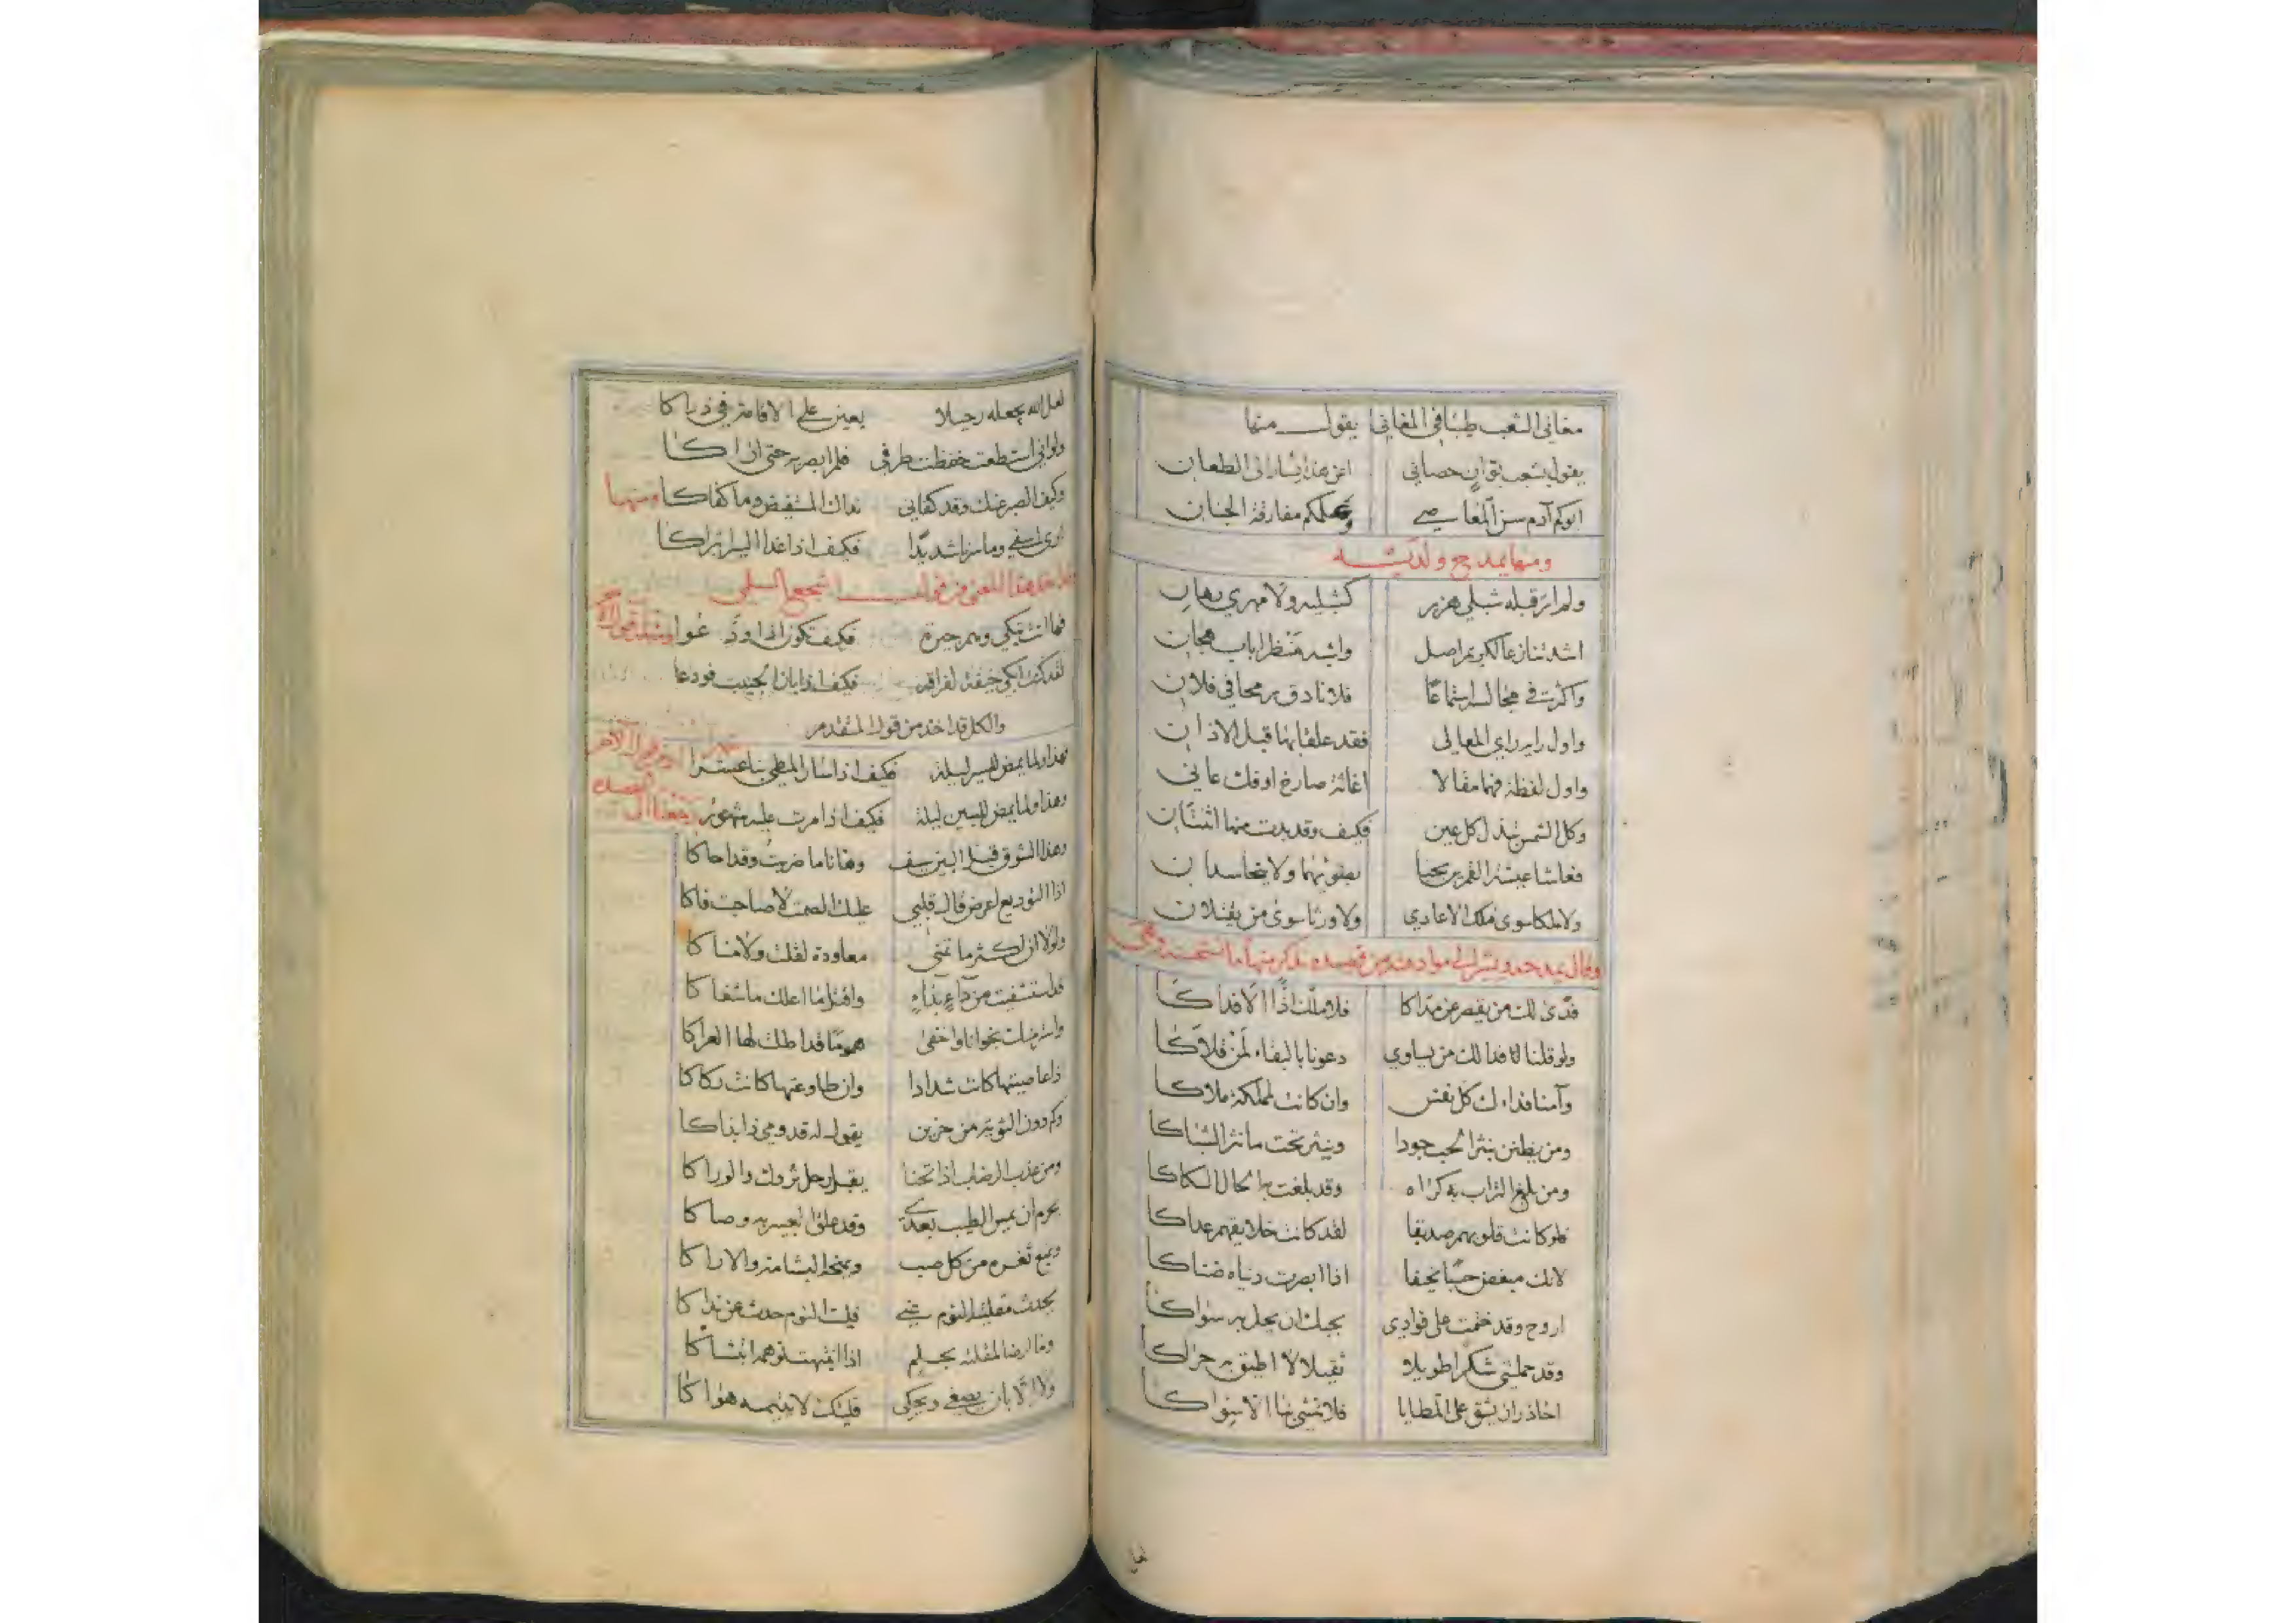 مغاني الشعب طيبا في المغاني يقول منها
يقول بشعب بوان حصاني اعن هذا يسار الى الطعان
ابوكم آدم سن المعاصي وعلمكم مفارقة الجنان
ومنها يمدح ولديه
ولم ار قبله شبلي هزبر كشبليه ولا مهري رهان
اشد تنازعا لكريم اصل واشبه منظرا باب هجان
واكثر في مجالسه استماعا فلان دق رمحا في فلان
واول رايه راي المعالي فقد علقا بها قبل الاذان
واول لفظة فهما مقالا اغاثة صارخ او فك عاني
وكل الشمس تبذل كل عين فكيف وقد بدت منها اثنتان
فعاشا عيشة القمرين يحيا بضوئهما ولا يتحاسدان
ولا ملكا سوى ملك الاعادي ولا ورثا سوى من يقتلان
فدى لك من يقصر عن مداكا فلا ملك اذا الا فداكا
ولو قلنا فدا لك من يساوي دعونا بالبقاء لمن قلاكا
وآمنا فداءك كل نفس وان كانت لمملكة ملاكا
ومن يظنن نثر الحب جودا وينثر تحت ما نثر الشباكا
ومن بلغ التراب به كراه وقد بلغت به الحال السكاكا
فلو كانت قلوبهم صديقا لقد كانت خلايقهم عداكا
لانك مبغض حسبا نحيفا اذا ابصرت دنياه ضناكا
اروح وقد ختمت على فوادي بحبك ان يحل به سواكا
وقد حملتني شكرا طويلا ثقيلا لا اطيق به حراكا
احاذر ان يشق على المطايا فلا تمشي بنا الا سواكا
لعل
لعل الله يجعله رحيلا يعين على الاقامة في ذراكا
ولو اني استطعت خفضت طرفي فلم ابصر به حتى اراكا
وكيف الصبر عنك وقد كفاني نداك المستفيض وما كفاكا ومنها
ارى اسفي وما سرنا شديدا فكيف اذا غدا السير ابتراكا
هذا المعنى من قول اشجع السلمي
فها انت تبكي وهم جيرة فكيف تكون اذا ودعوا
لقد كنت ابكي خيفة لفراقه فكيف اذا بان الحبيب فودعا
والكل قد اخذ من قول المتقدم
وهذا ولما يمض للبين ليلة فكيف اذا سار المطي بنا عشرا
وهذا ولما يمض للبين ليلة فكيف اذا مرت عليه شهور
وهذا الشوق قبل البين سيف وها انا ما ضربت وقد احاكا
اذا التوديع اعرض قال قلبي عليك الصمت لا صاحبت فاكا
ولولا ان اكثر ما تمنى معاودة لقلت ولا مناكا
قد استشفيت من داء بداء واقتل ما اعلك ما شفاكا
واستر منك نجوانا واخفي هموما قد اطلت لها العراكا
اذا عاصيتها كانت شدادا وان طاوعتها كانت ركاكا
وكم دون الثوية من حزين يقول له قدومي ذا بذاكا
ومن عذب الرضاب اذا انخنا يقبل رحل تروك والوراكا
يحرم ان يمس الطيب بعدي وقد علق العبير به وصاكا
ويمنع ثغره من كل صب ويمنحه البشامة والاراكا
يحدث مقلتيه النوم عني فليت النوم حدث عن نداكا
وما ارضى لمقلته بحلم اذا انتبهت توهمه ابتشاكا
ولا الا بان يصغي واحكي فليتك لا يتيمه هواكا